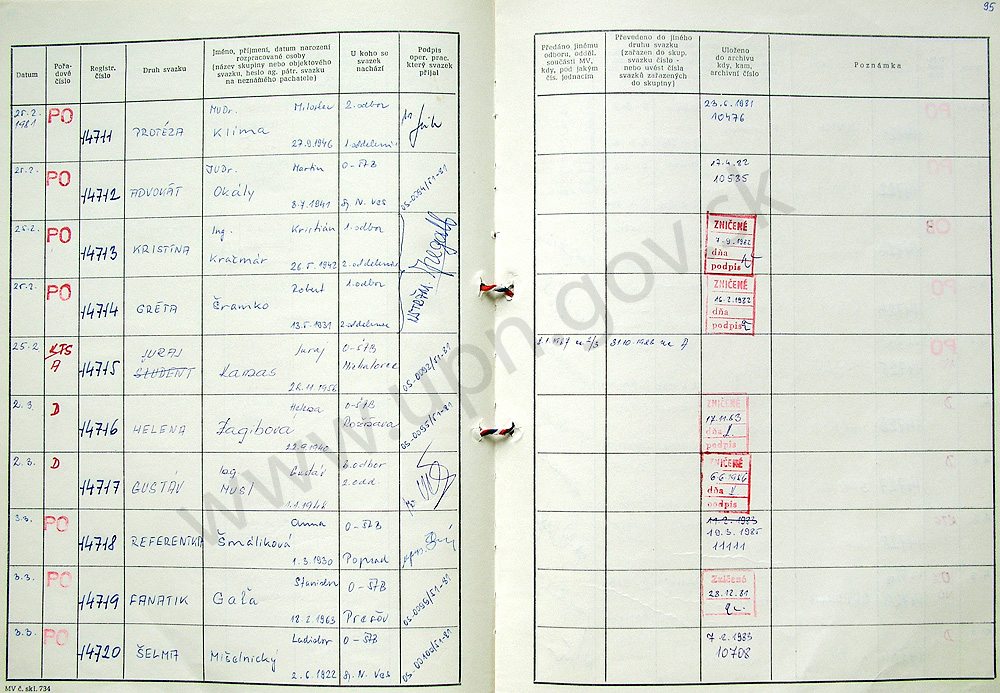 95
Datum
Pořa-
dové
číslo
Registr.
číslo
Druh svazku
Jméno, příjmení, datum narození
rozpracované osoby
(název skupiny nebo objektového
svazku, heslo ag. pátr. svazku
na neznámého pachatele)
U koho se
svazek
nachází
Podpis
oper. prac.
který svazek
přijal
Předáno jinému
odboru, odděl.
součásti MV,
kdy, pod jakým
čís. jednacím
Převedeno do jiného
druhu svazku
(zařazen do skup.
svazku číslo -
nebo uvést čísla
svazků zařazených
do skupiny)
Uloženo
do archivu
kdy, kam,
archivní číslo
Poznámka
25.2.
1981
PO
14711
PROTÉZA
MUDr. Miloslav
Klíma
27.9.1946
2. odbor
1. oddelenie
23.6.1981
10476
25.2.
PO
14712
ADVOKÁT
JUDr. Martin
Okály
8.7.1941
O-ŠTB
Sp. N. Ves
OS-0094/S1-81
17.4.82
10535
25.2.
PO
14713
KRISTÍNA
Ing. Kristián
Kračmár
26.5.1942
1. odbor
2. oddelenie
ZNIČENÉ
7-9.1982
dňa
podpis
25.2.
PO
14714
GRÉTA
Robert
Čramko
13.5.1931
1. odbor
2 oddelenie
ZNIČENÉ
16.2.1982
dňa
podpis
25.2
KTS
A
14715
JURAJ
ŠTUDENT
Juraj
Kanas
26.11.1956
O-ŠTB
Michalovce
OS-0092/S1-81
31.10.1986 na A
2.3.
D
14716
HELENA
Helena
Zagibova
22.9.1940
O-ŠTB
Rožňava
OS-0095/S1-81
ZNIČENÉ
17.11.83
dňa
podpis
2.3.
D
14717
GUSTÁV
Ing. Gustáv
Musi
1.1.1944
6. odbor
2. odd.
ZNIČENÉ
6.6.1986
dňa
podpis
3.3.
PO
14718
REFERENTKA
Anna
Šmáliková
1.3.1930
O-ŠTB
Poprad
11.2.1983
19.3.1985
11111
3.3.
PO
14719
FANATIK
Stanislav
Gaľa
12.2.1963
O-ŠTB
Prešov
OS-0096/S1-81
Zničené
28.12.81
3.3.
PO
14720
ŠELMA
Ladislav
Mišelnický
2.6.1922
O-ŠTB
Sp. N. Ves
OS-00100/S1-81
7.2.1983
10708
MV č. skl. 734
www.upn.gov.sk